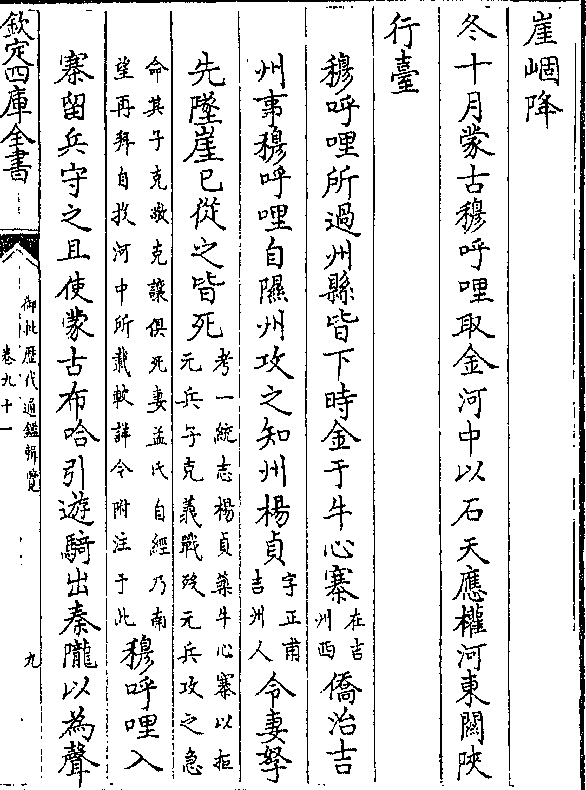 崖崓降
冬十月蒙古穆呼哩取金河中以石天應權河東關陝
行臺
穆呼哩所過州縣皆下時金于牛心寨在吉州西僑治吉
州事穆呼哩自隰州攻之知州楊貞字正甫吉州人令妻孥
先墜崖已從之皆死考一統志楊貞築牛心寨以拒元兵子克義戰歿元兵攻之急
命其子克敬克讓俱死妻孟氏自經乃南望再拜自投河中所載較詳今附注于此穆呼哩入
寨留兵守之且使蒙古布哈引遊騎出秦隴以為聲
欽定四庫全書
御批歷代通鑑輯覽
卷九十一
九